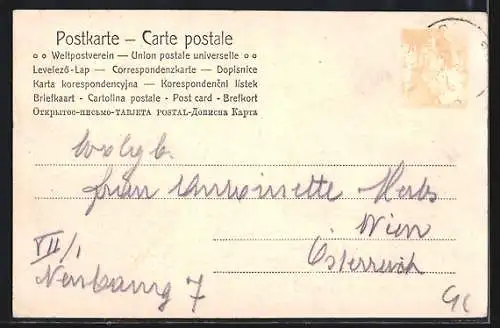 Postkarte — Carte postale
Weltpostverein — Union postale universelle
Levelező-Lap — Correspondenzkarte — Dopisnice
Karta korespondencyjna — Korespondenční lístek
Briefkaart - Cartolina postale - Post card - Brefkort
Открытое-письмо-TABJETA POSTAL-Дописна Карта
Frau Antoinette
Wien
VII/1 Österreich
Neubaug 7